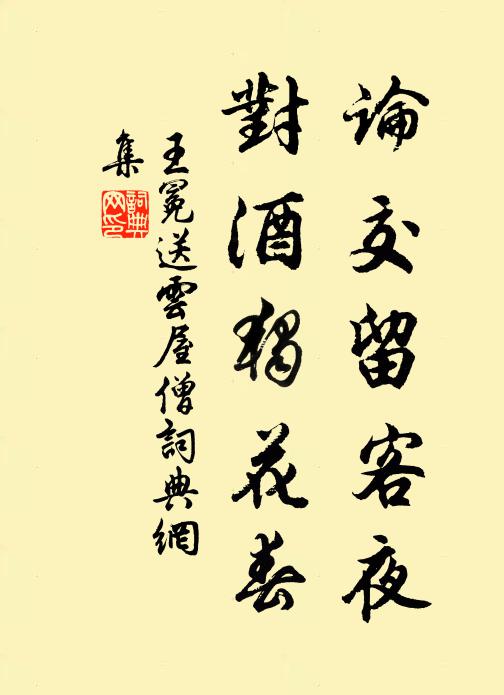 論交留客夜
對酒獨花春
王冕送雲屋僧詞典網
集
詞典
网印